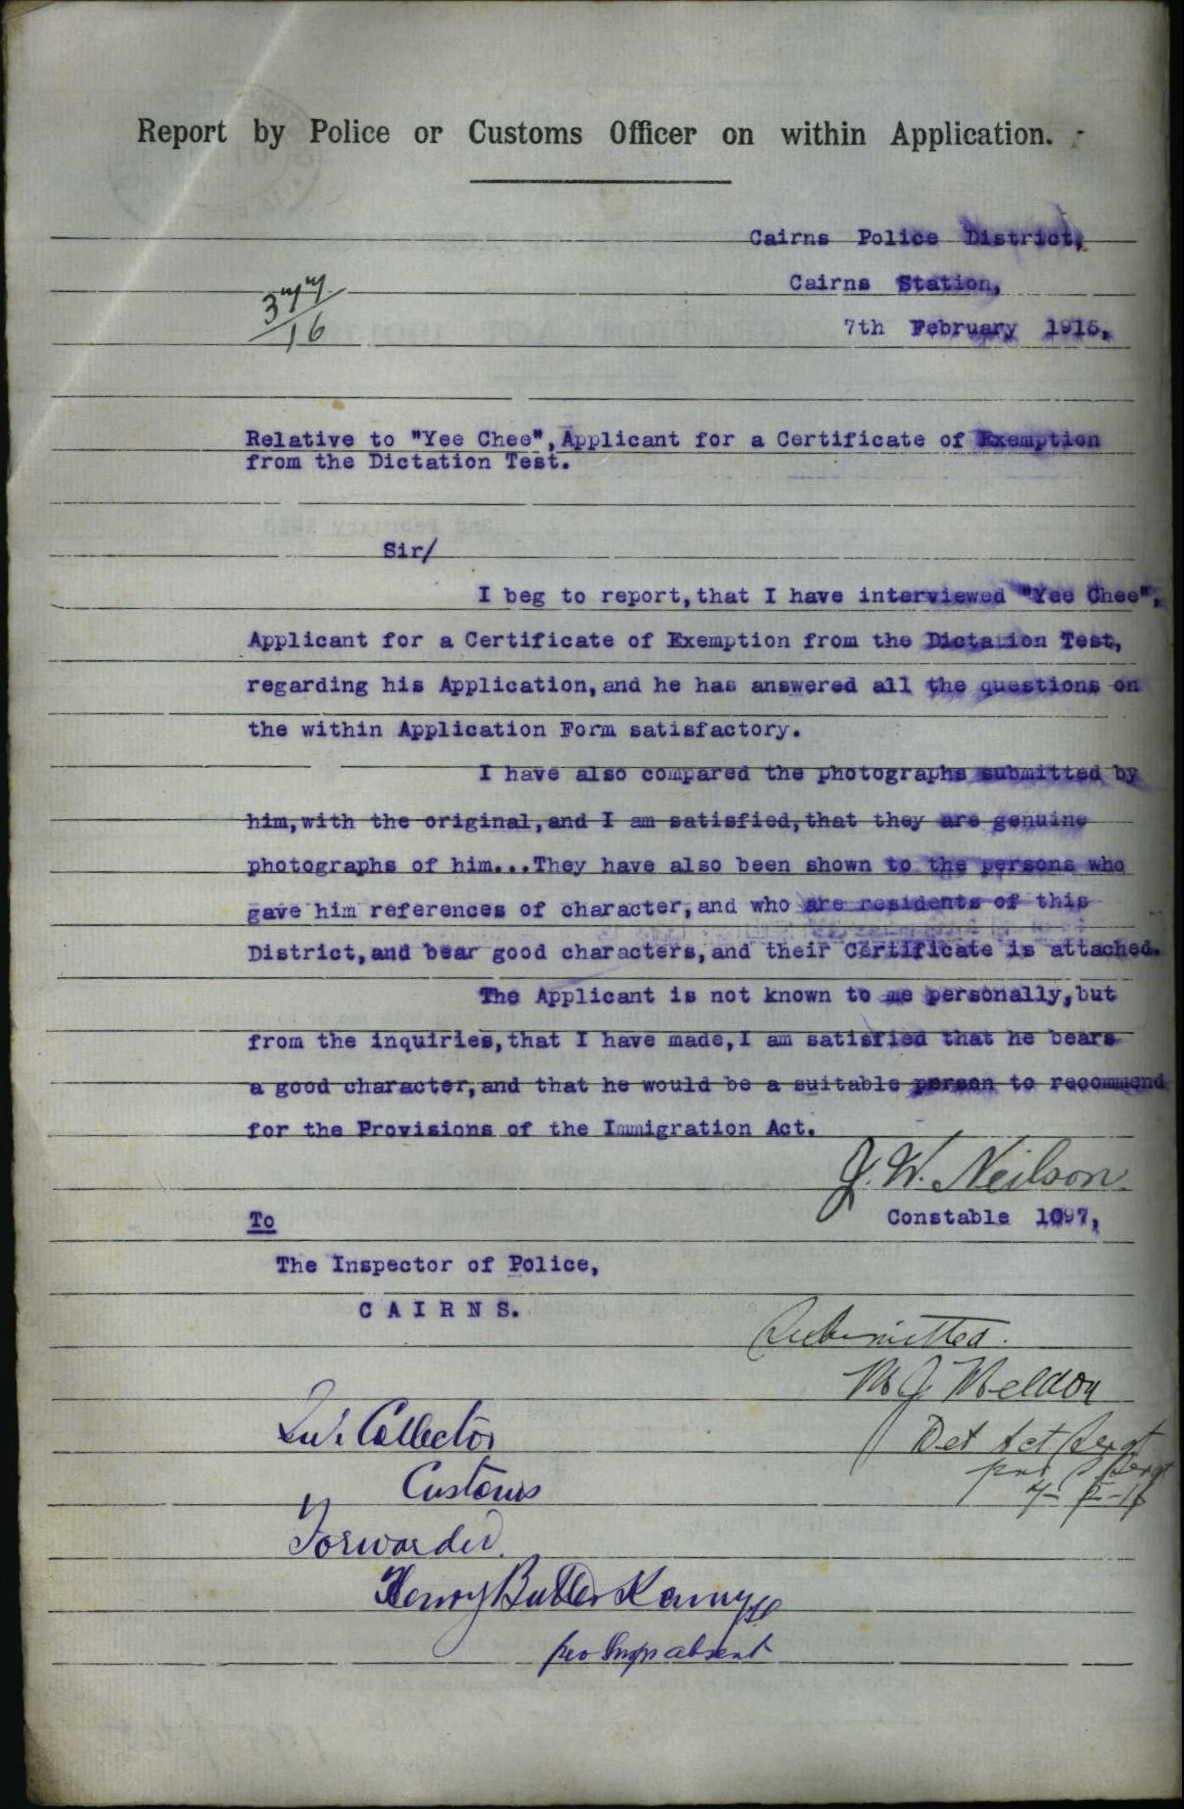 Report by Police or Customs Officer on within Application.
Cairns Police District,
Cairns Station,
377/16
7th February 1916,
Relative to "Yee Chee", Applicant for a Certificate of Exemption
from the Dictation Test.
Sir/
I beg to report, that I have interviewed "Yee Chee",
Applicant for a Certificate of Exemption from the Dictation Test,
regarding his Application, and he has answered all the questions on
the within Application Form satisfactory.
I have also compared the photographs submitted by
him, with the original, and I am satisfied, that they are genuine
photographs of him...They have also been shown to the persons who
gave him references of character, and who are residents of this
District, and bear good characters, and their Certificate is attached.
The Applicant is not known to me personally, but
from the inquiries, that I have made, I am satisfied that he bears
a good character, and that he would be a suitable person to recommend
for the Provisions of the Immigration Act.
J. W. Neilson
Constable 1097,
To
The Inspector of Police,
CAIRNS.
Submitted.
M J Meldon
Det Act Sergt
7-2-16
Collector
Customs
Forwarded.
Henry Butler
absent